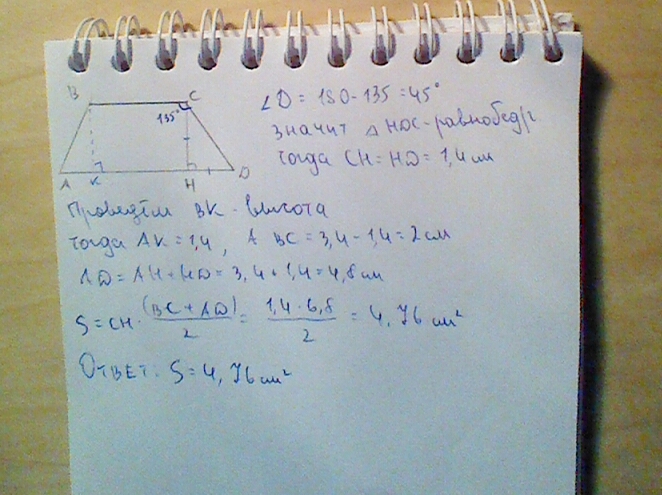 B
C
135°
A
K
H
D
∠D = 180 - 135 = 45°
значит △ HDC - равнобедр
тогда CH = HD = 1,4 см
Проведём BK - высота
тогда AK = 1,4, А BC = 3,4 - 1,4 = 2 см
AD = AH + HD = 3,4 + 1,4 = 4,8 см
S = CH · (BC + AD) / 2 = 1,4 · 6,8 / 2 = 4,76 см²
Ответ: S = 4,76 см²